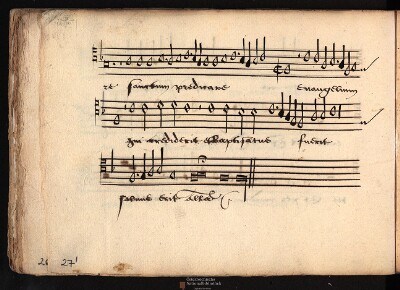 re sanctum predicare Evangelium
qui crediderit et baptisatus fuerit
salvus erit
26 27